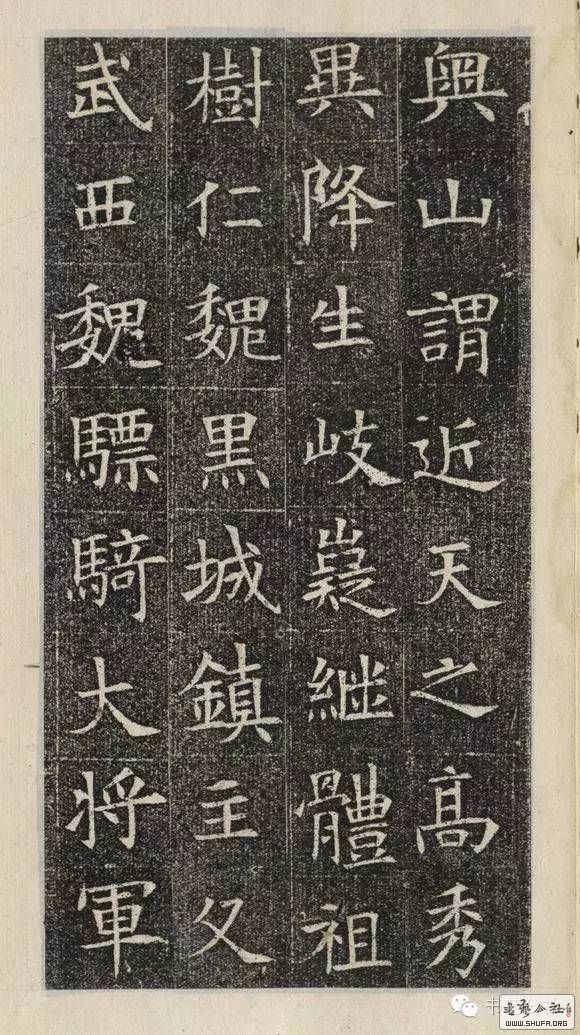 輿山謂近天之高秀
異降生岐嶷継體祖
樹仁魏黒城鎮主父
武西魏驃騎大将軍
WWW.SHUFA.ORG